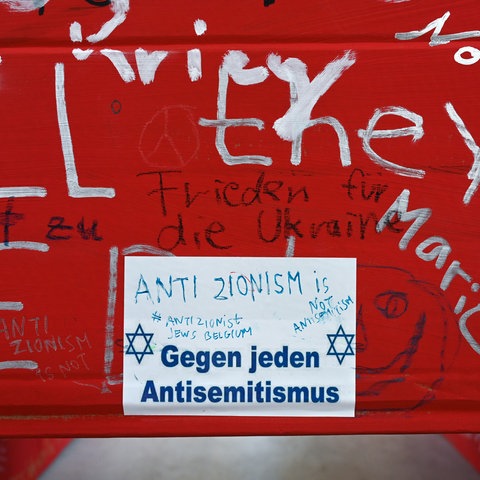 Krieg
they
Frieden für
die Ukraine
t zu
Mari
ANTI ZIONISM is
NOT
ANTISEMITISM
# ANTIZIONIST
JEWS BELGIUM
ANTI
ZIONISM
is NOT
Gegen jeden
Antisemitismus